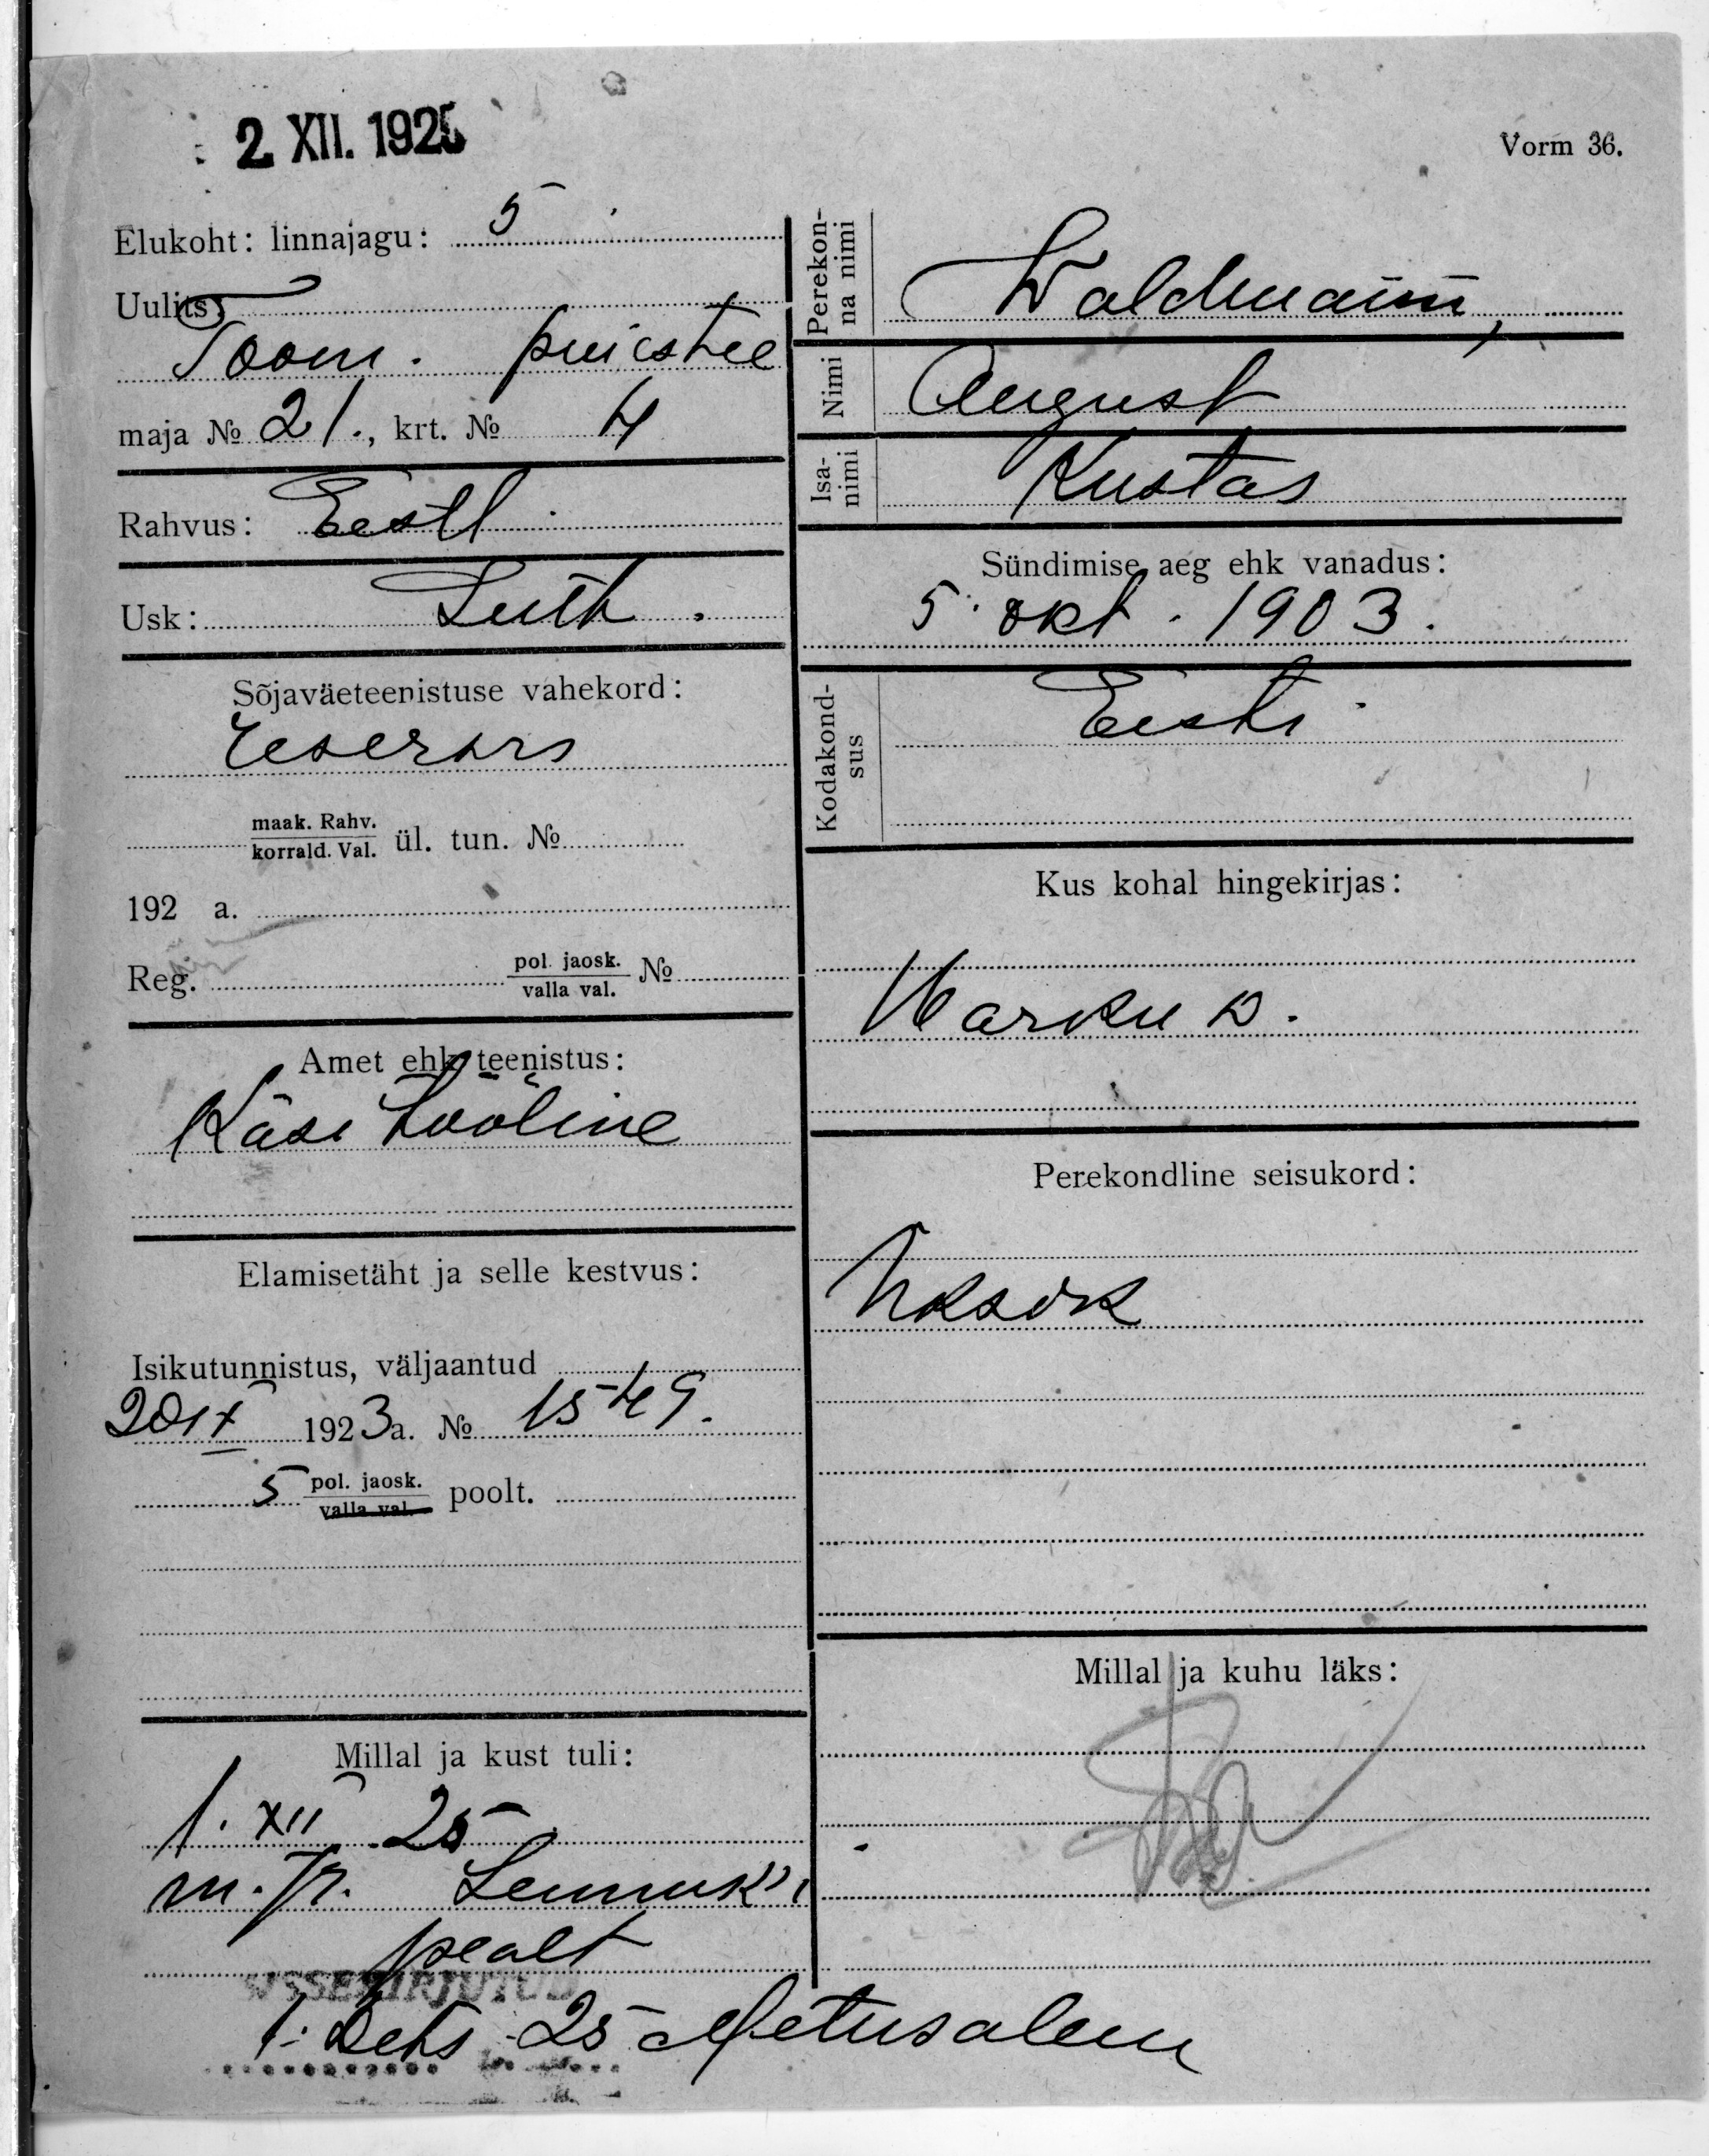 2. XII. 1925
Vorm 36.
Elukoht: linnajagu: 5
Uulits:
Toom. puiestee
maja № 21., krt. № 4
Rahvus: Eestl.
Usk: Luth.
Sõjaväeteenistuse vahekord:
reservis
maak. Rahv.
korrald. Val. ül. tun. №
192 a.
Reg. pol. jaosk.
valla val. №
Amet ehk teenistus:
Käsitööline
Elamisetäht ja selle kestvus:
Isikutunnistus, väljaantud
20 IX 1923 a. № 1549.
5 pol. jaosk.
valla val. poolt.
Millal ja kust tuli:
1. XII 25
m. jr. Lennuk'i
pealt
SISSEKIRJUTUD
1. Dets. 25 Metusalem
Perekon-
na nimi Waldmann,
Nimi August
Isa-
nimi Kustas
Sündimise aeg ehk vanadus:
5. okt. 1903.
Kodakond-
sus Eesti
Kus kohal hingekirjas:
Harku v.
Perekondline seisukord:
Üksik
Millal ja kuhu läks: